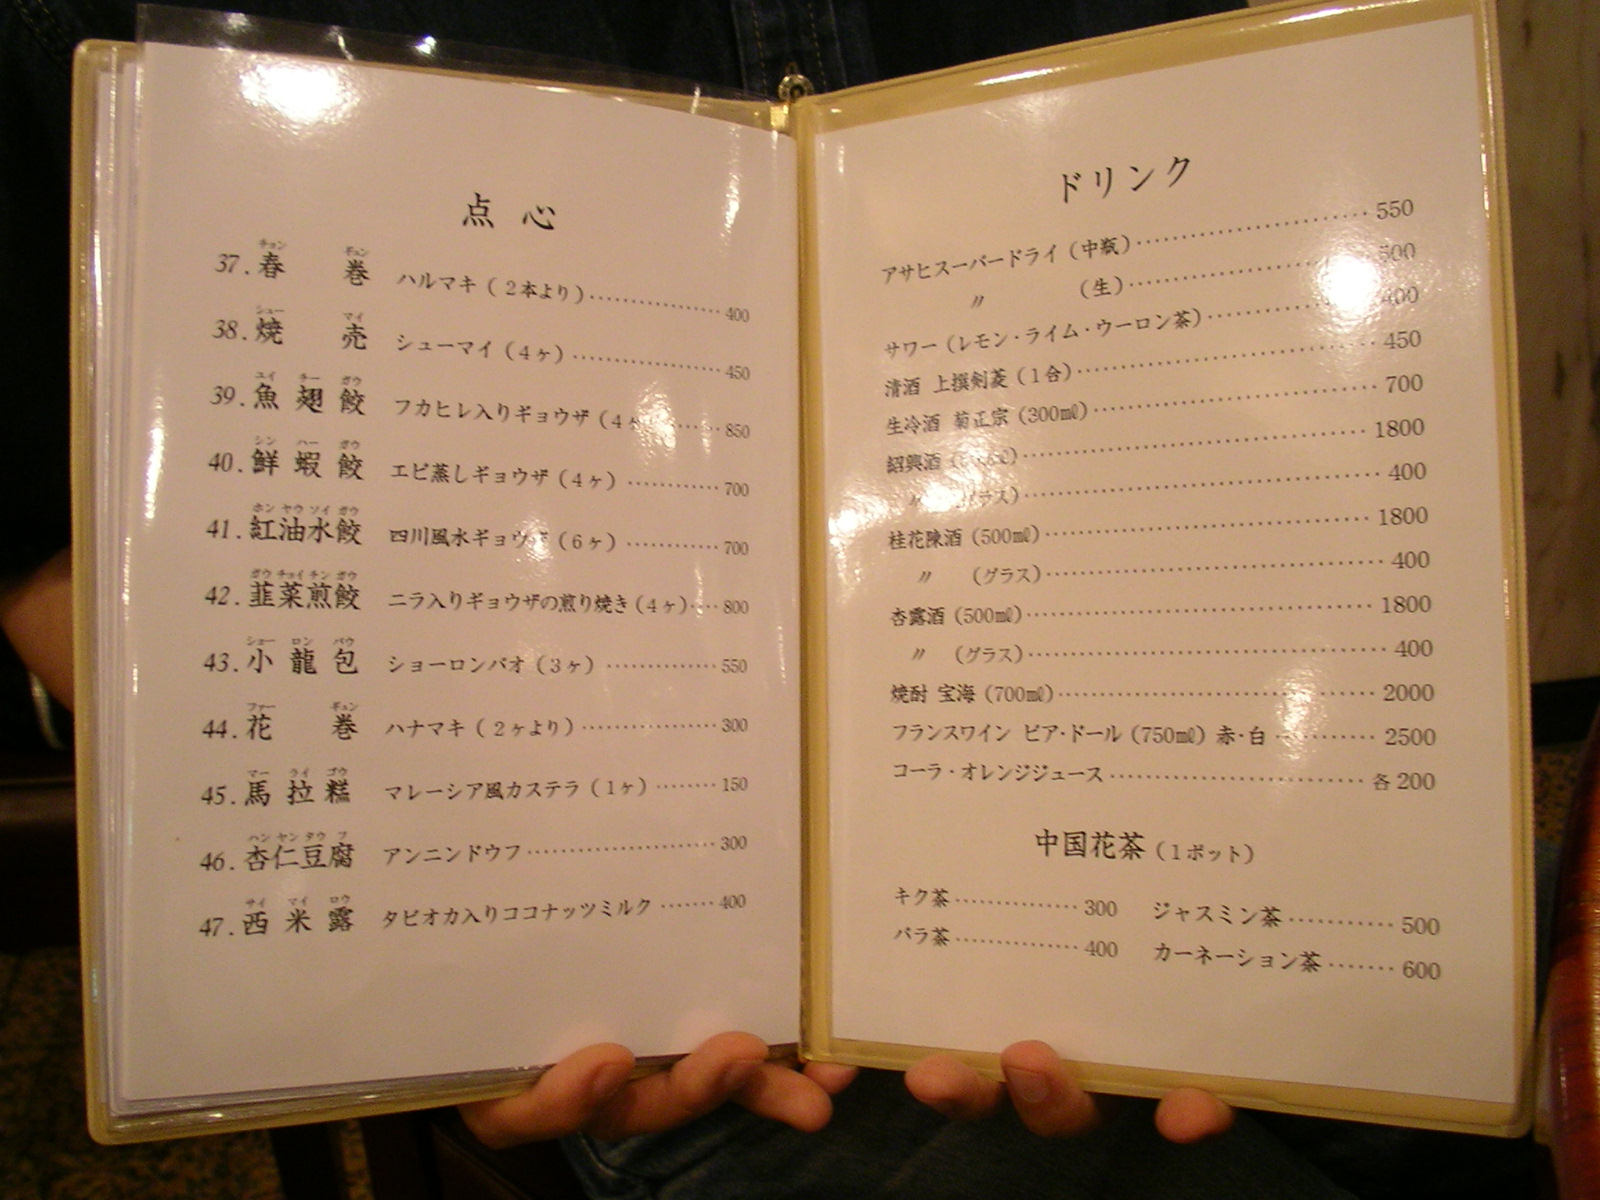 点心
37. 春巻 チョン ギュン ハルマキ（2本より） 400
38. 焼売 シュー マイ シューマイ（4ヶ） 450
39. 魚翅餃 ユイ チー ガウ フカヒレ入りギョウザ（4 850
40. 鮮蝦餃 シン ハー ガウ エビ蒸しギョウザ（4ヶ） 700
41. 紅油水餃 ホン ヤウ ソイ ガウ 四川風水ギョウザ（6ヶ） 700
42. 韮菜煎餃 ガウ チョイ チン ガウ ニラ入りギョウザの煎り焼き（4ヶ） 800
43. 小龍包 ショー ロン パウ ショーロンパオ（3ヶ） 550
44. 花巻 ファー ギュン ハナマキ（2ヶより） 300
45. 馬拉糕 マー ライ ゴウ マレーシア風カステラ（1ヶ） 150
46. 杏仁豆腐 ハン ヤン タウ フ アンニンドウフ 300
47. 西米露 サイ マイ ロウ タピオカ入りココナッツミルク 400
ドリンク
アサヒスーパードライ（中瓶） 550
〃（生） 500
サワー（レモン・ライム・ウーロン茶） 400
清酒 上撰剣菱（1合） 450
生冷酒 菊正宗（300㎖） 700
紹興酒 1800
〃（グラス） 400
桂花陳酒（500㎖） 1800
〃（グラス） 400
杏露酒（500㎖） 1800
〃（グラス） 400
焼酎 宝海（700㎖） 2000
フランスワイン ピア・ドール（750㎖）赤・白 2500
コーラ・オレンジジュース 各200
中国花茶（1ポット）
キク茶 300 ジャスミン茶 500
バラ茶 400 カーネーション茶 600